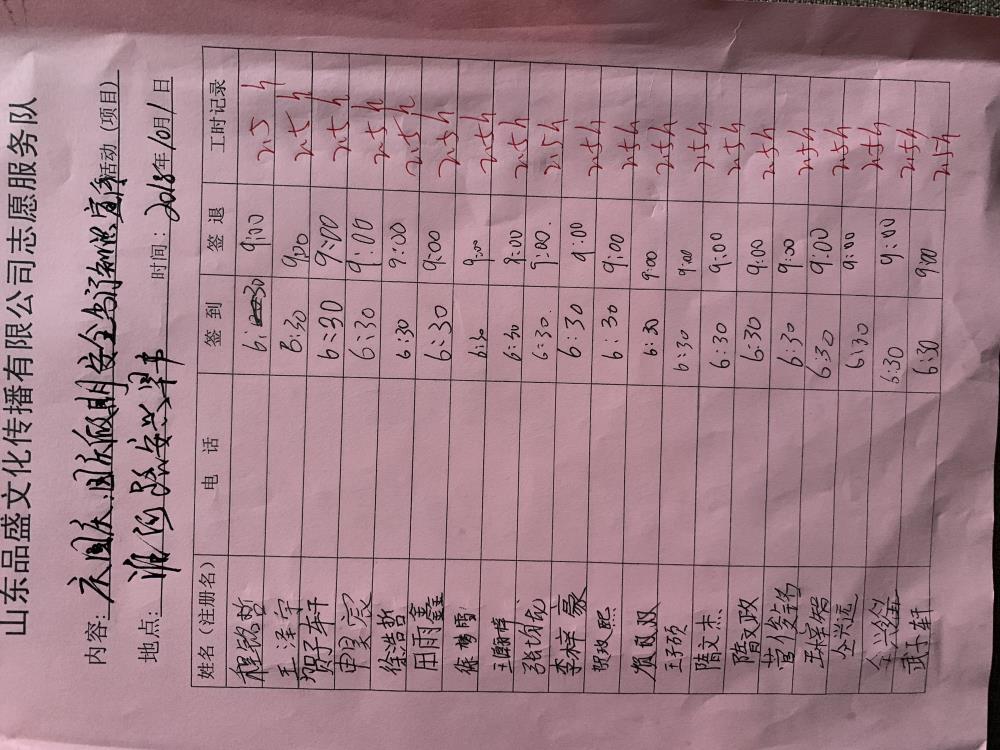 山东品盛文化传播有限公司志愿服务队
内容：庆国庆、国庆假期安全 活动（项目）
地点：淮河路 时间：2018年10月1日
姓名（注册名） 电 话 签 到 签 退 工时记录
程铭哲 6:30 9:00 2.5h
王泽宇 6:30 9:00 2.5h
贺子轩 6:30 9:00 2.5h
田昊宸 6:30 9:00 2.5h
徐浩哲 6:30 9:00 2.5h
田雨鑫 6:30 9:00 2.5h
徐梦雨 6:30 9:00 2.5h
王翰梓 6:30 9:00 2.5h
张均成 6:30 9:00 2.5h
李梓豪 6:30 9:00 2.5h
贺双熙 6:30 9:00 2.5h
贺双双 6:30 9:00 2.5h
王子硕 6:30 9:00 2.5h
隋文杰 6:30 9:00 2.5h
隋文政 6:30 9:00 2.5h
菅俊锋 6:30 9:00 2.5h
6:30 9:00 2.5h
仝兴远 6:30 9:00 2.5h
仝兴 6:30 9:00 2.5h
武子轩 6:30 9:00 2.5h